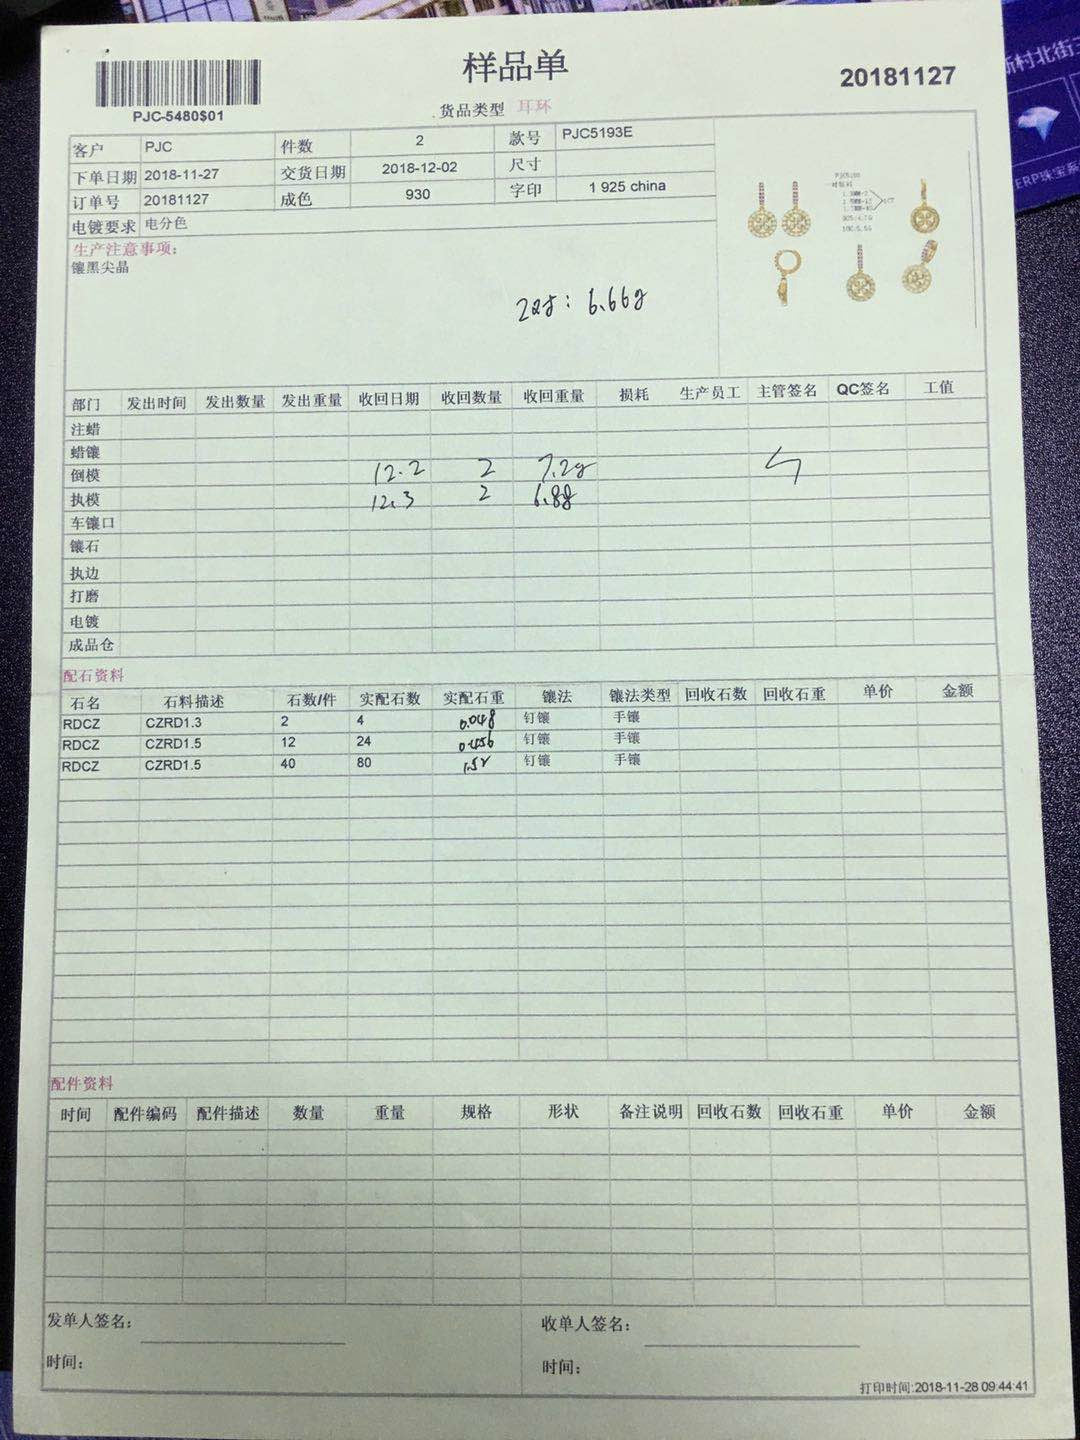 样品单
20181127
PJC-5480$01
货品类型 耳环
客户 PJC 件数 2 款号 PJC5193E
下单日期 2018-11-27 交货日期 2018-12-02 尺寸
订单号 20181127 成色 930 字印 1 925 china
电镀要求 电分色
生产注意事项:
镶黑尖晶
6.66g
部门 发出时间 发出数量 发出重量 收回日期 收回数量 收回重量 损耗 生产员工 主管签名 QC签名 工值
注蜡
蜡镶
倒模 12.2 2 7.2g
执模 12.3 2 6.88
车镶口
镶石
执边
打磨
电镀
成品仓
配石资料
石名 石料描述 石数/件 实配石数 实配石重 镶法 镶法类型 回收石数 回收石重 单价 金额
RDCZ CZRD1.3 2 4 0.048 钉镶 手镶
RDCZ CZRD1.5 12 24 0.456 钉镶 手镶
RDCZ CZRD1.5 40 80 1.52 钉镶 手镶
配件资料
时间 配件编码 配件描述 数量 重量 规格 形状 备注说明 回收石数 回收石重 单价 金额
发单人签名: 收单人签名:
时间: 时间:
打印时间:2018-11-28 09:44:41
新村北街
ERP珠宝系